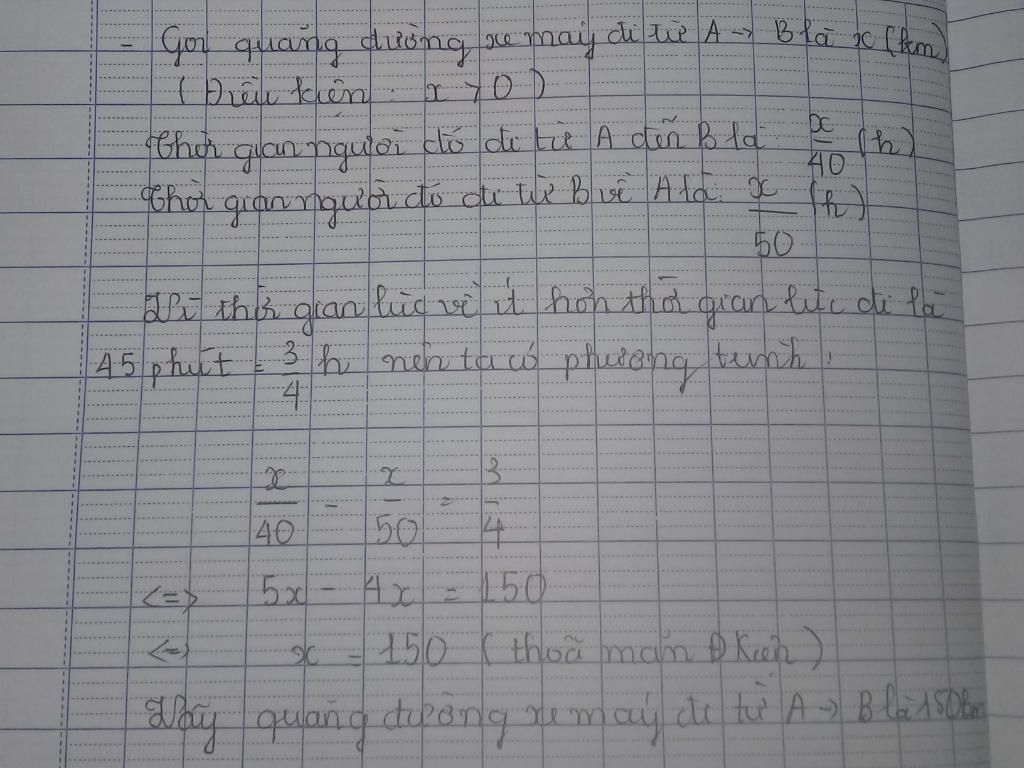 - Gọi quãng đường xe máy đi từ A → B là x (km)
(Điều kiện: x > 0)
Thời gian người đó đi từ A đến B là: x/40 (h)
Thời gian người đó đi từ B về A là: x/50 (h)
Vì thời gian lúc về ít hơn thời gian lúc đi là
45 phút = 3/4 h nên ta có phương trình:
x/40 - x/50 = 3/4
<=> 5x - 4x = 150
<=> x = 150 (thoã mãn Đ Kiện)
Vậy quãng đường xe máy đi từ A → B là 150km